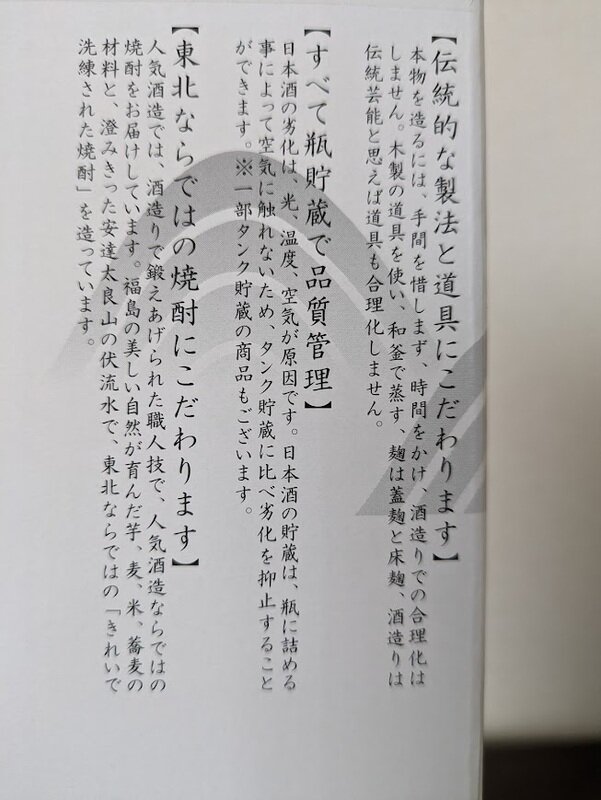 【伝統的な製法と道具にこだわります】
本物を造るには、手間を惜しまず、時間をかけ、酒造りでの合理化は
しません。木製の道具を使い、和釜で蒸す、麹は蓋麹と床麹、酒造りは
伝統芸能と思えば道具も合理化しません。
【すべて瓶貯蔵で品質管理】
日本酒の劣化は、光、温度、空気が原因です。日本酒の貯蔵は、瓶に詰める
事によって空気に触れないため、タンク貯蔵に比べ劣化を抑止すること
ができます。※一部タンク貯蔵の商品もございます。
【東北ならではの焼酎にこだわります】
人気酒造では、酒造りで鍛えあげられた職人技で、人気酒造ならではの
焼酎をお届けしています。福島の美しい自然が育んだ芋、麦、米、蕎麦の
材料と、澄みきった安達太良山の伏流水で、東北ならではの「きれいで
洗練された焼酎」を造っています。